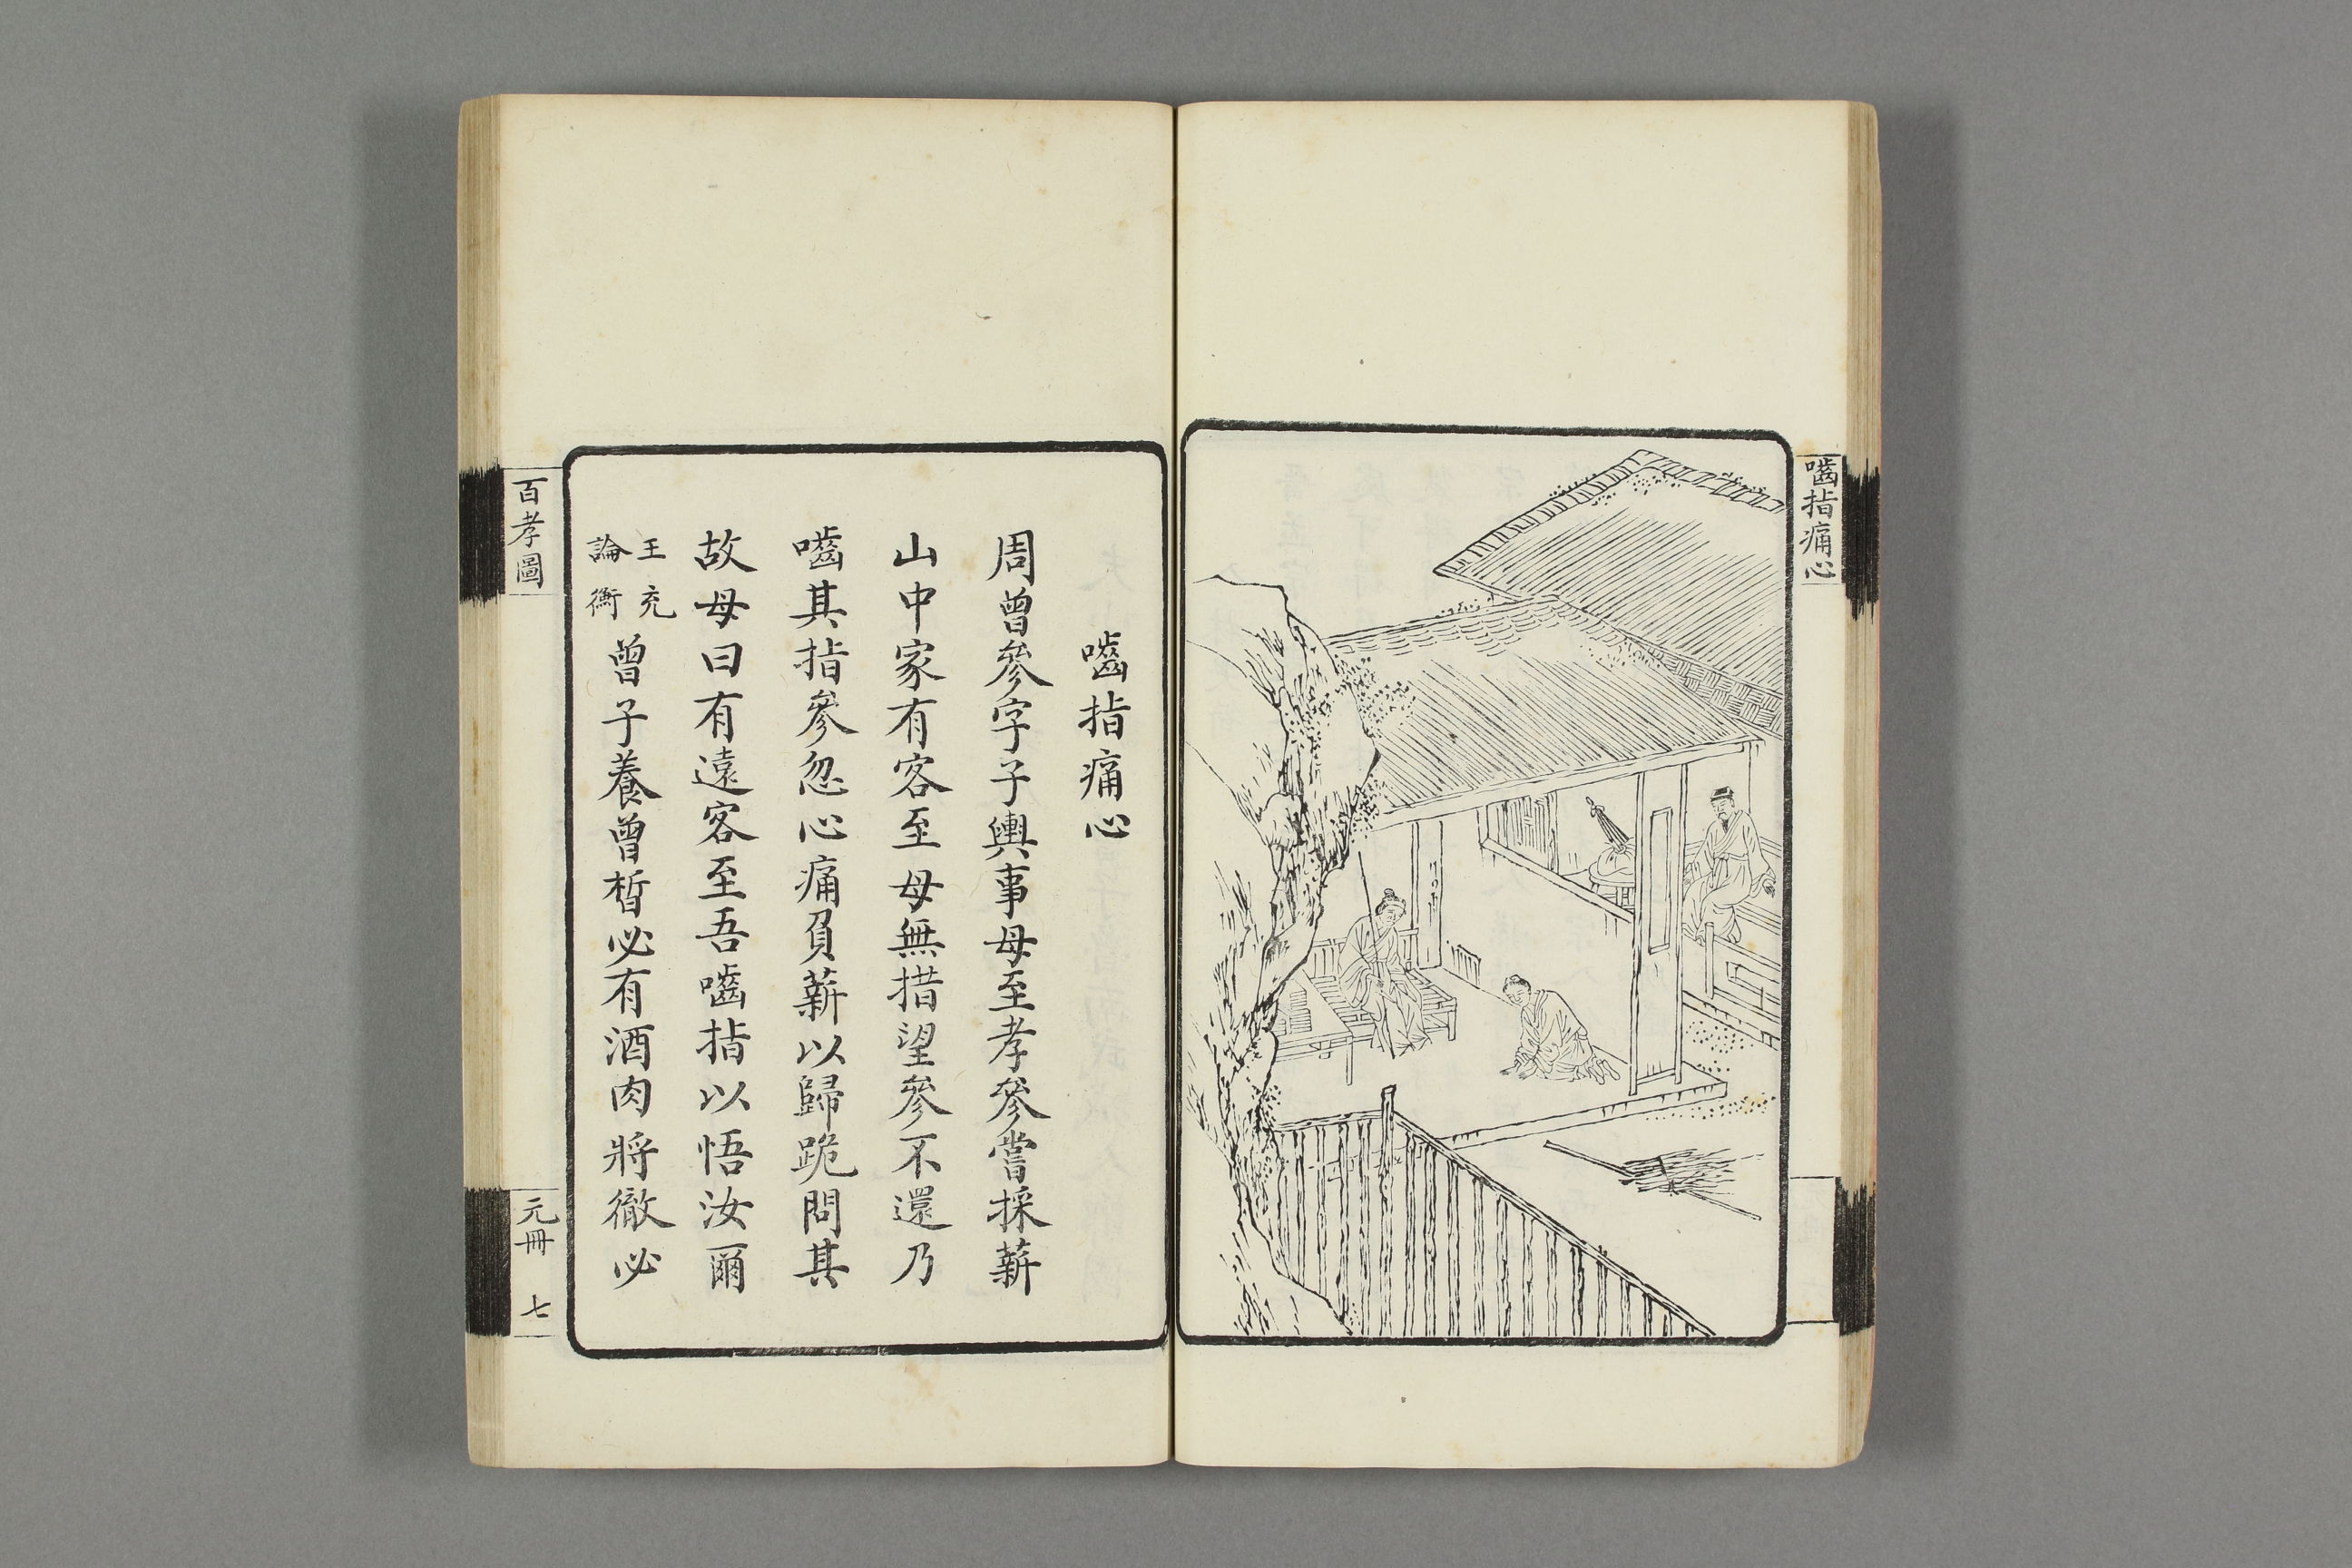 嚙指痛心
嚙指痛心
周曾參字子輿事母至孝參嘗採薪
山中家有客至母無措望參不還乃
嚙其指參忽心痛負薪以歸跪問其
故母曰有遠客至吾嚙指以悟汝爾
王充
論衡
曾子養曾晳必有酒肉將徹必
百孝圖
元冊
七